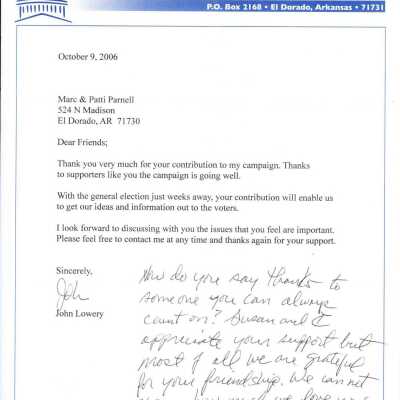 P.O. Box 2168 • El Dorado, Arkansas • 71731
October 9, 2006
Marc & Patti Parnell
524 N Madison
El Dorado, AR  71730
Dear Friends;
Thank you very much for your contribution to my campaign. Thanks
to supporters like you the campaign is going well.
With the general election just weeks away, your contribution will enable us
to get our ideas and information out to the voters.
I look forward to discussing with you the issues that you feel are important.
Please feel free to contact me at any time and thanks again for your support.
Sincerely,
John
John Lowery
How do you say thanks to
someone you can always
count on? Susan and I
appreciate your support but
most of all we are grateful
for your friendship. We cannot
how much we love you